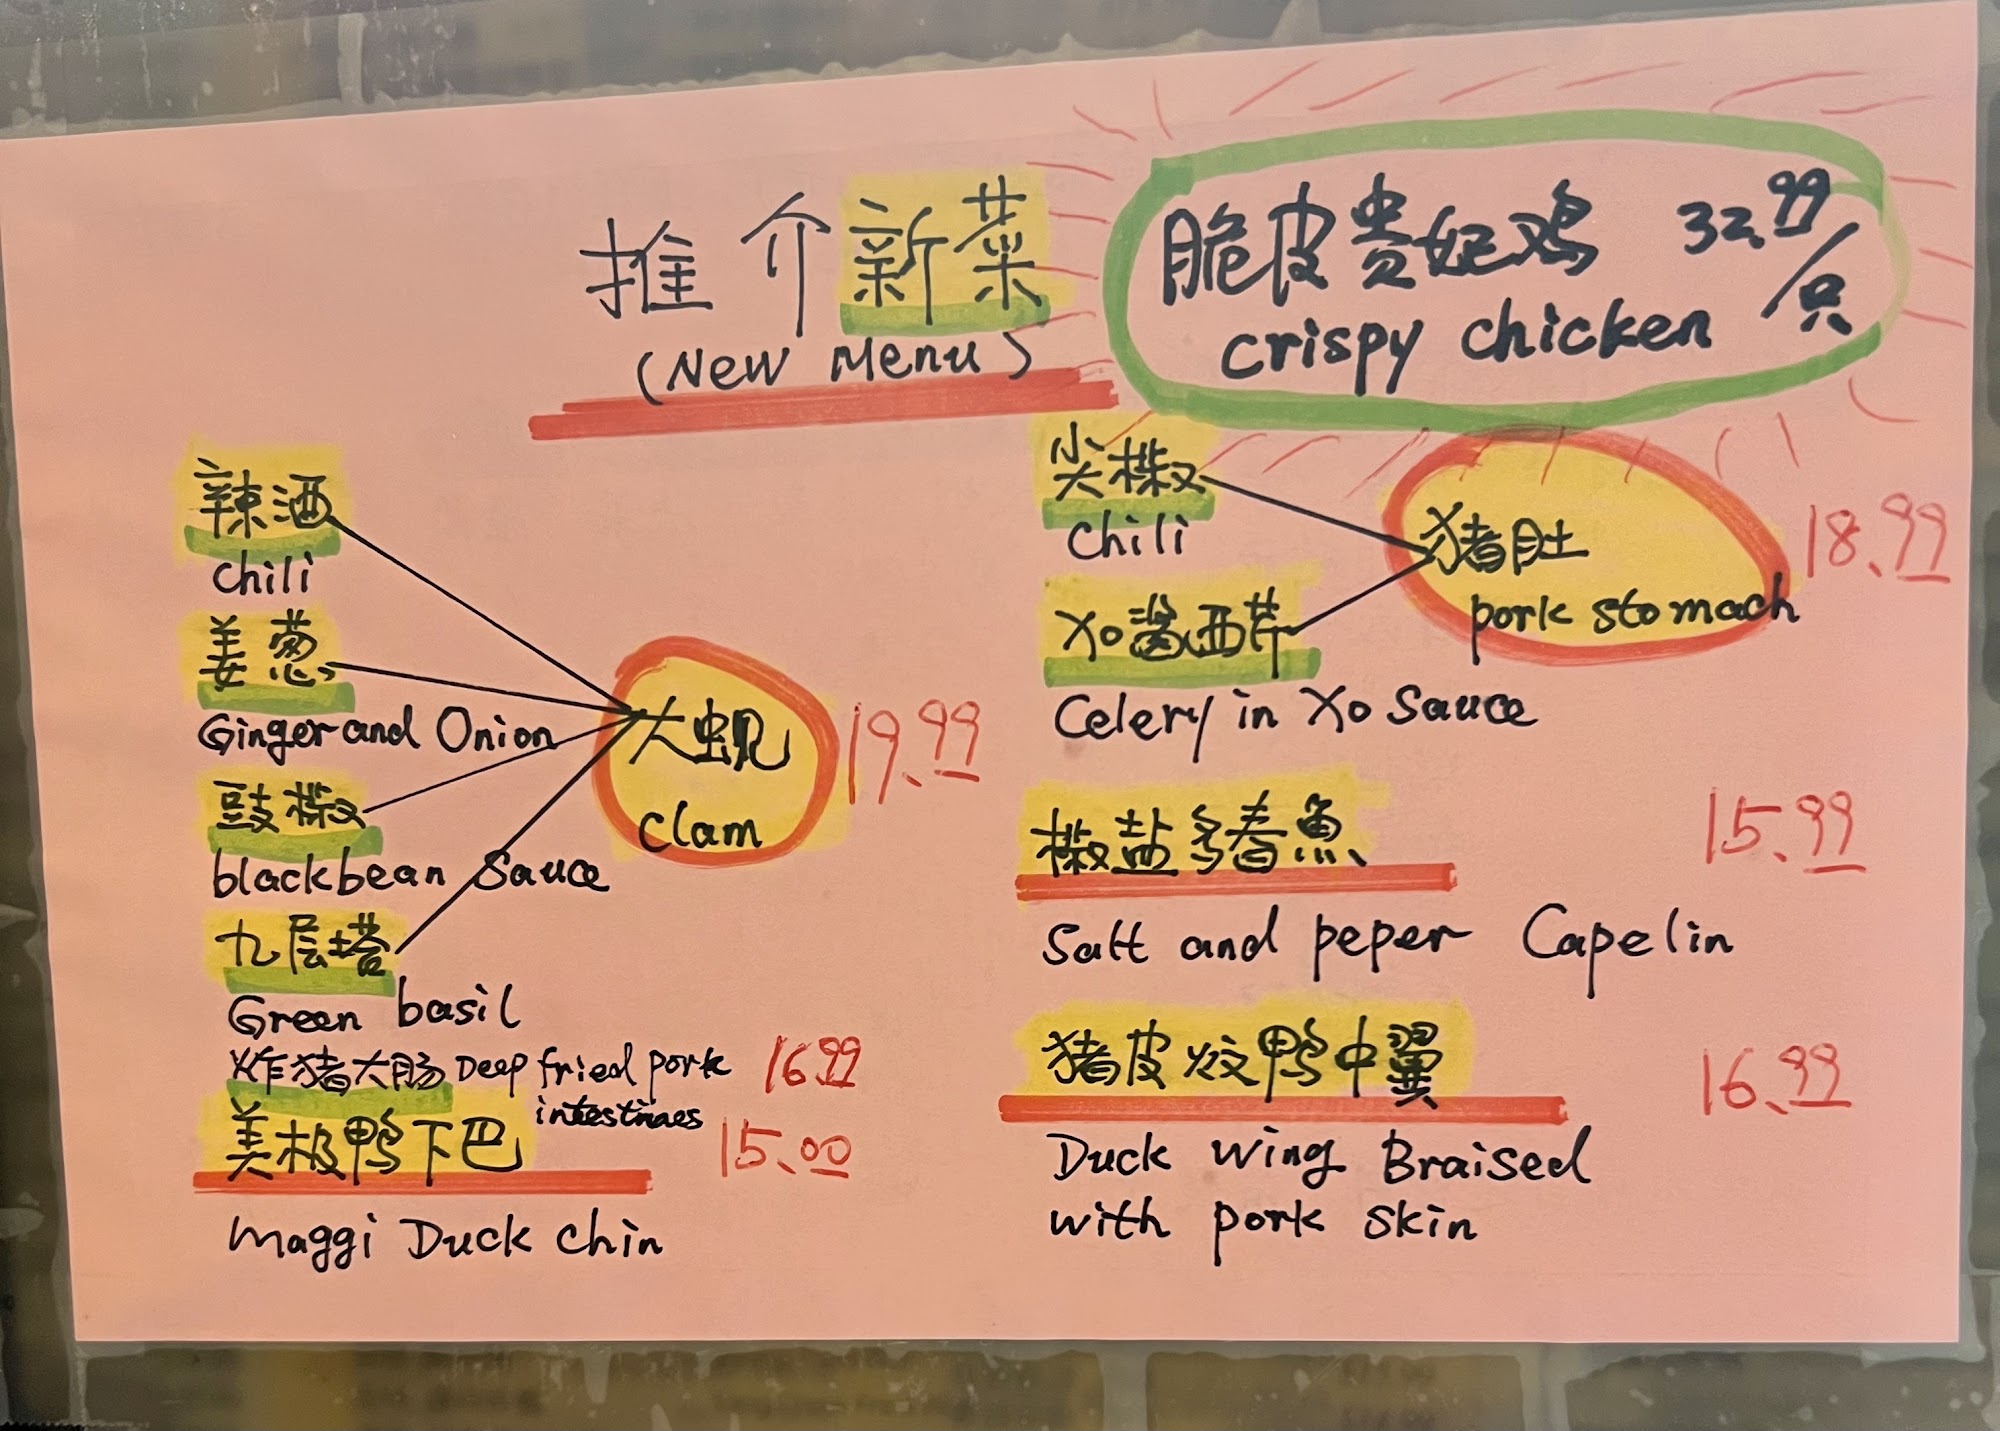 推介新菜
(New Menu)
脆皮贵妃鸡 32.99/只
crispy chicken
辣酒
chili
姜葱
Ginger and Onion
豉椒
blackbean Sauce
九层塔
Green basil
大蚬
clam
19.99
炸猪大肠 Deep fried pork 16.99
intestinaes
美极鸭下巴 15.00
Maggi Duck chin
尖椒
chili
XO酱西芹
Celery in XO Sauce
猪肚
pork stomach
18.99
椒盐多春鱼 15.99
Salt and peper Capelin
猪皮炆鸭中翼 16.99
Duck wing Braised
with pork skin